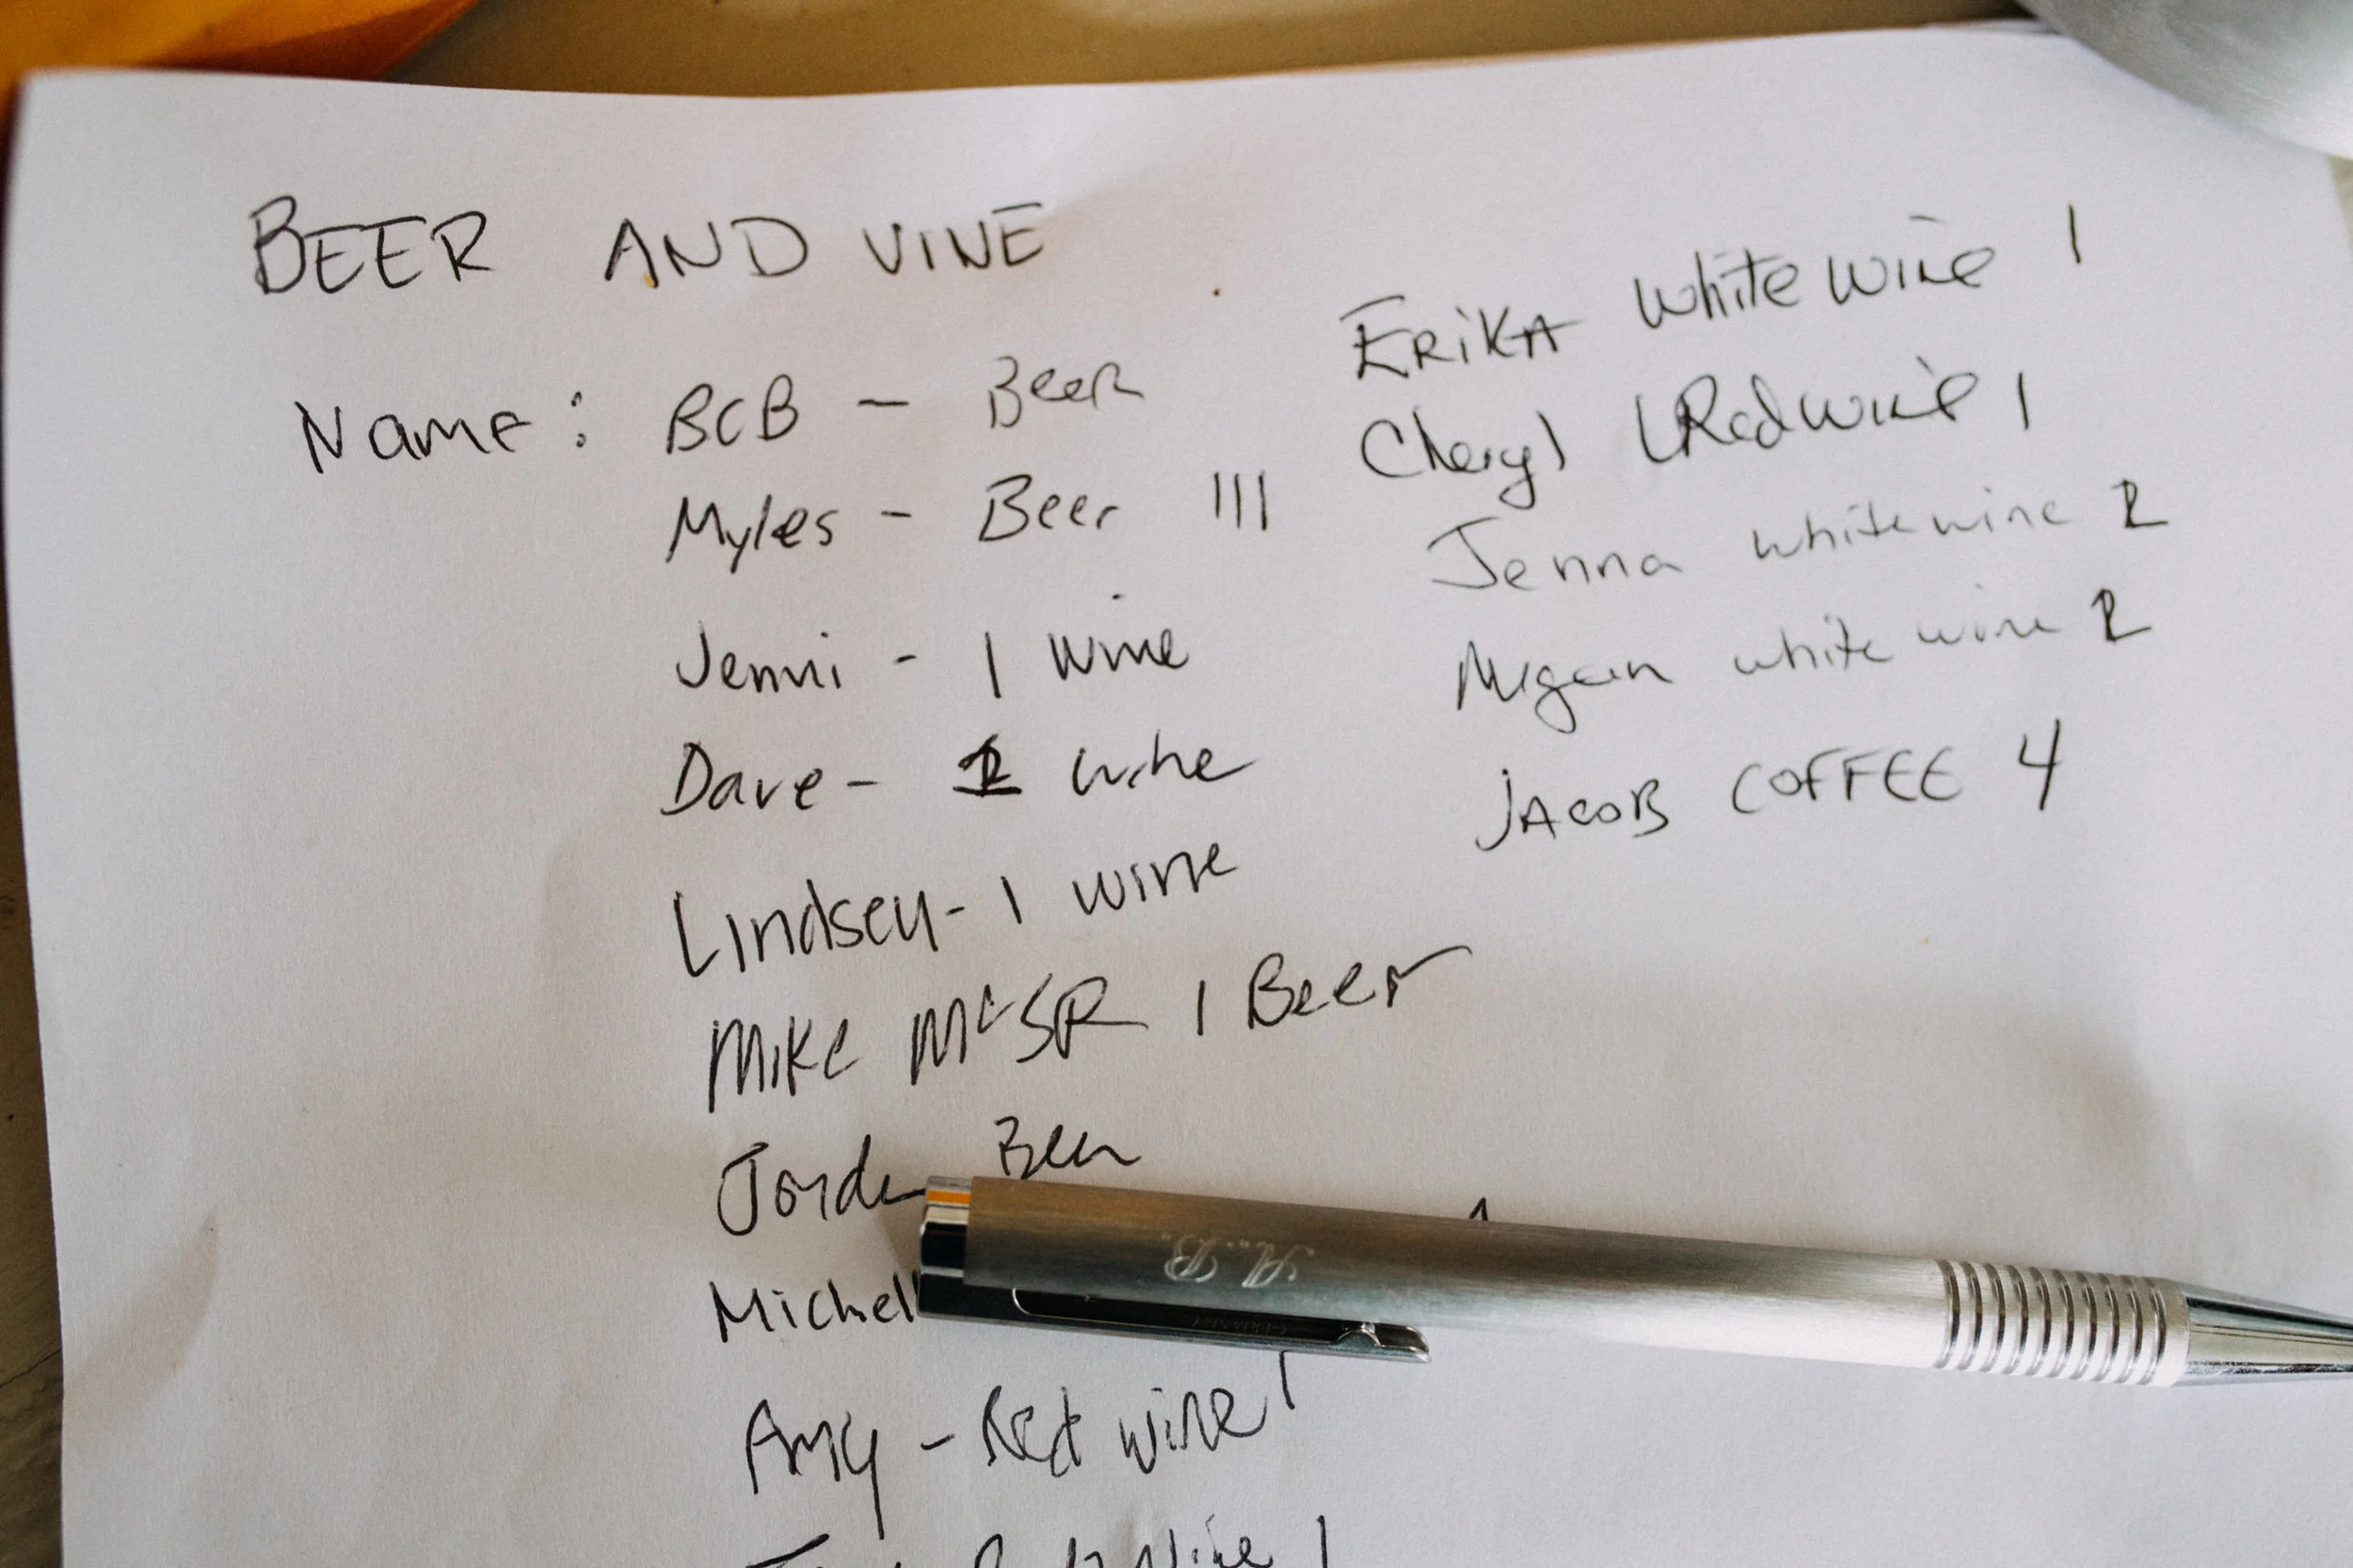 BEER AND VINE
Name: BCB - Beer
Myles - Beer III
Jenni - 1 wine
Dave - 2 wine
Lindsey - 1 wine
Mike McSR 1 Beer
Beer
Amy - Red wine 1
Wine 1
ERIKA white wine 1
Cheryl Red wine 1
Jenna white wine 2
Megan white wine 2
JACOB COFFEE 4
A.B.
GERMANY